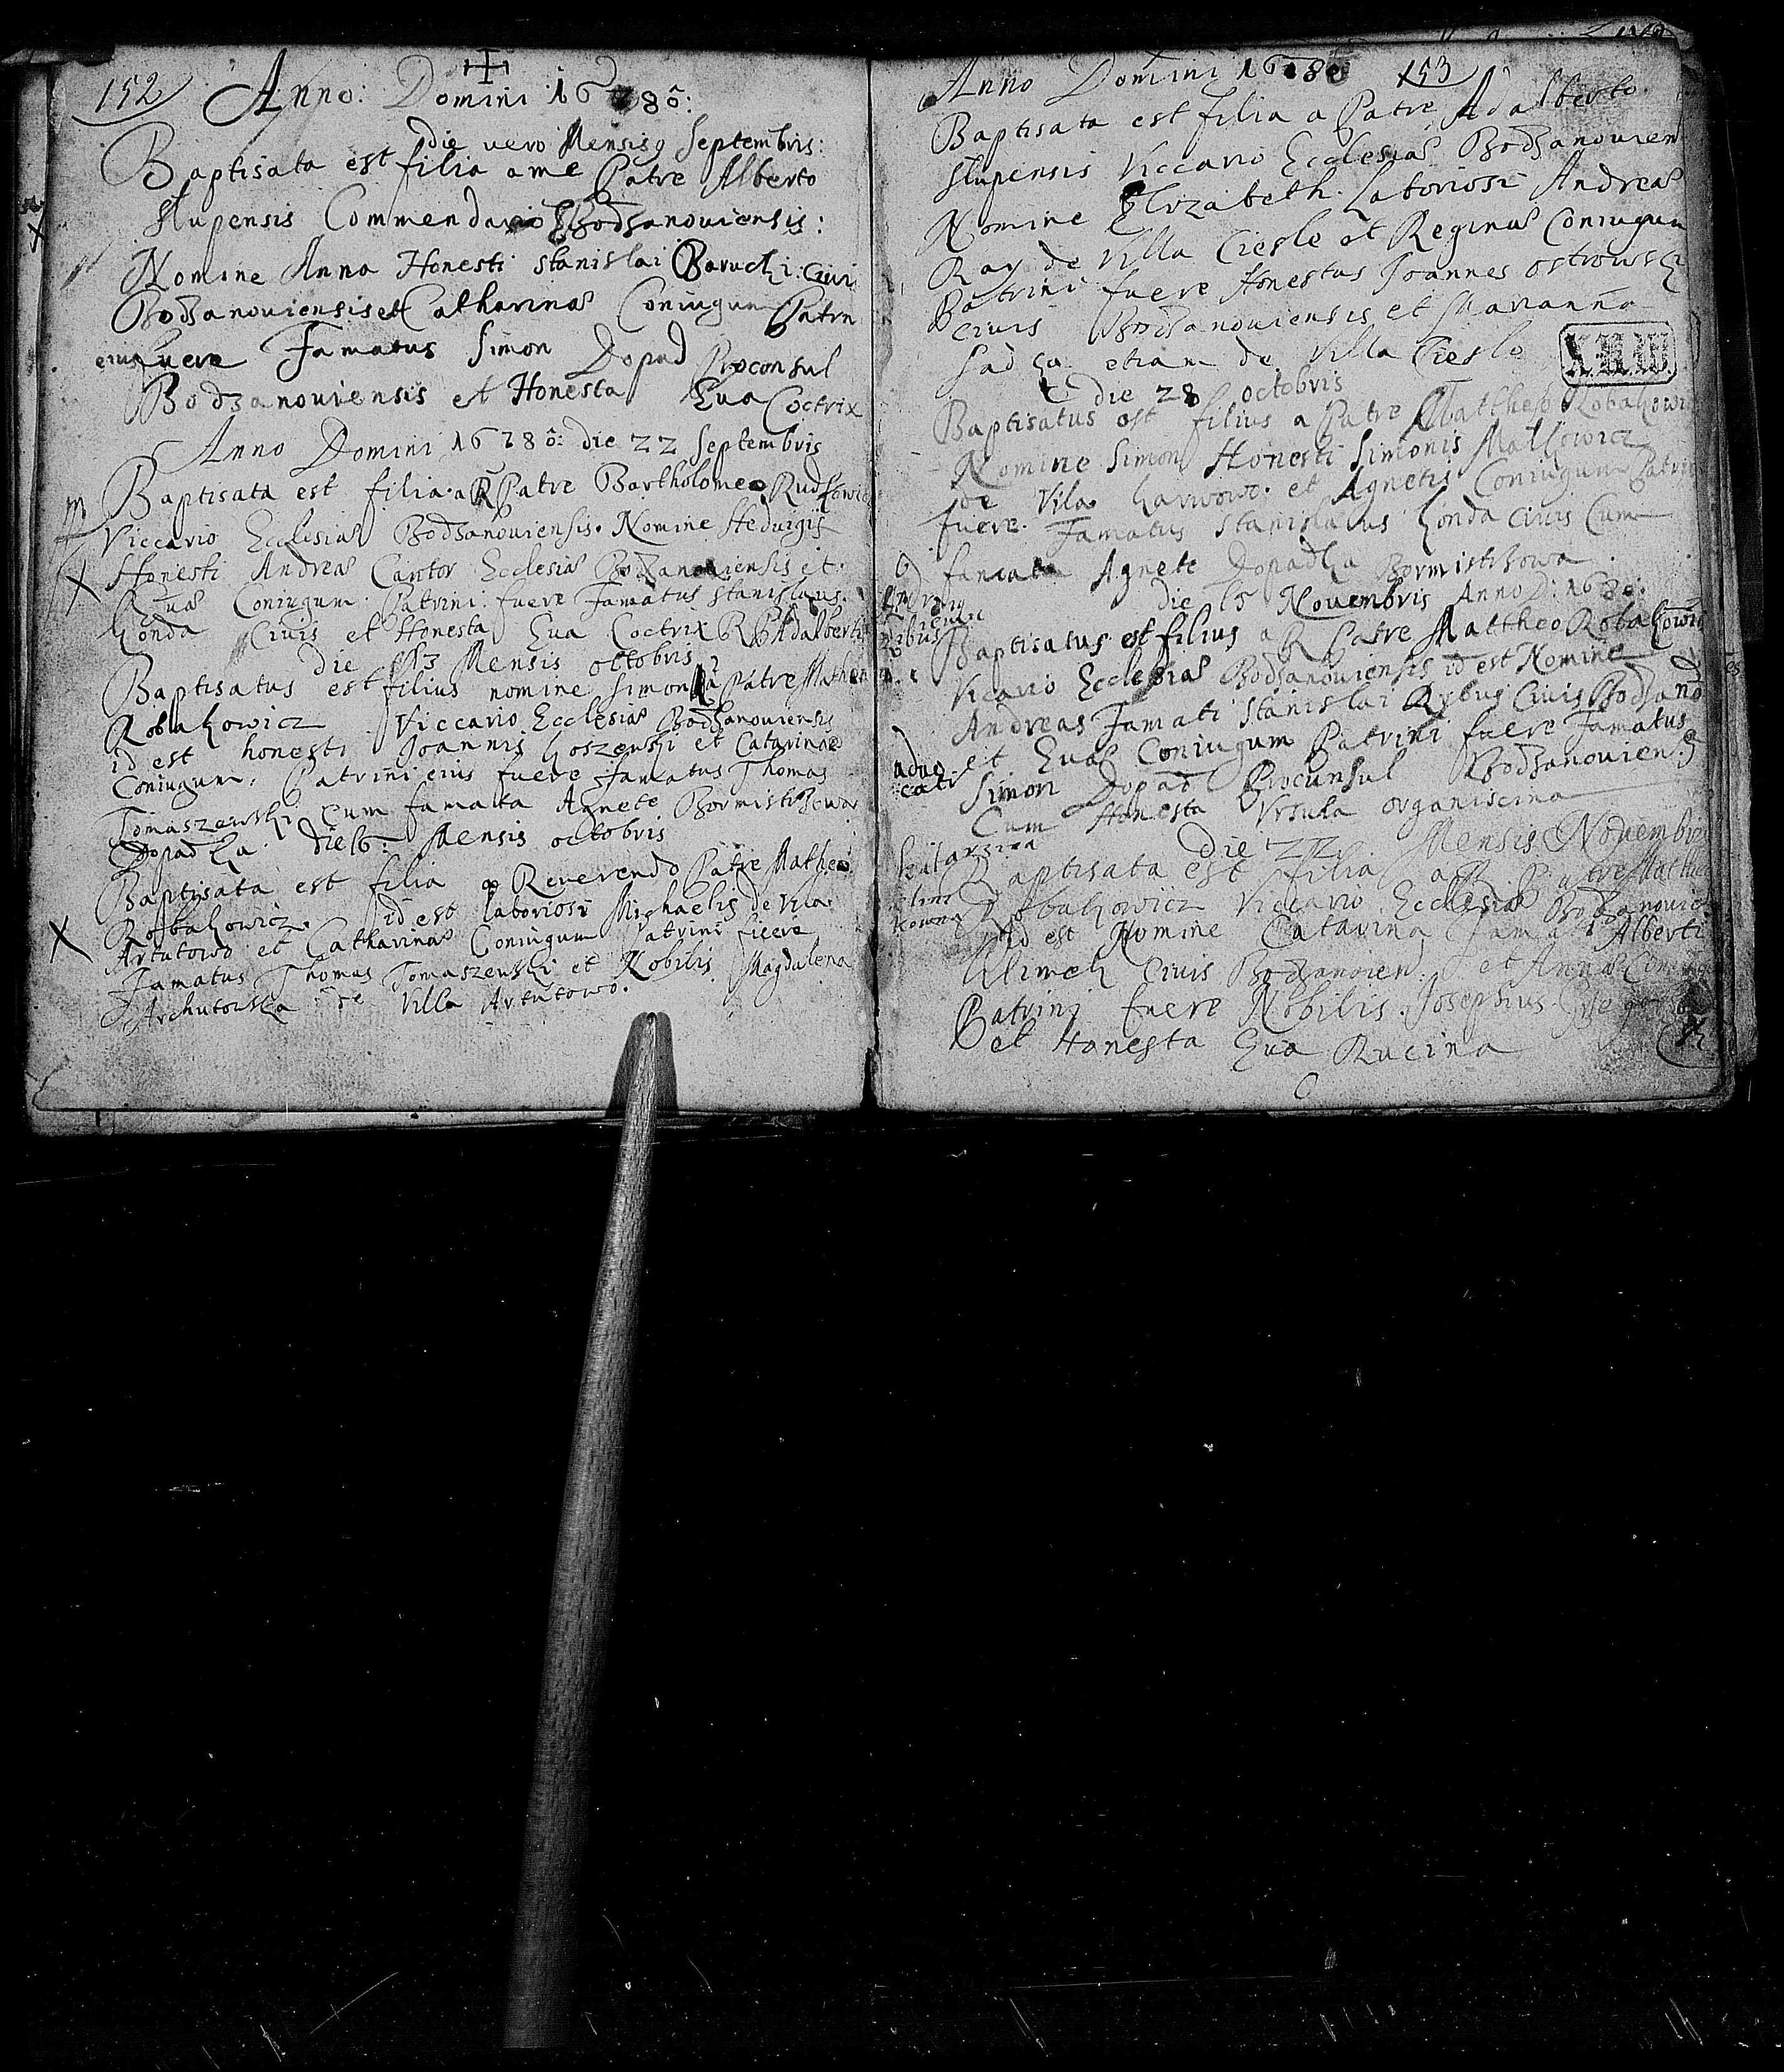 152
Anno: Domini 1680:
die vero Mensis 9 Septembris:
Baptisata est filia a me Patre Alberto
Slupensis Commendario Bodzanouiensis:
Nomine Anna Honesti Stanislai Baruchi Ciui
Bodzanouiensis et Catharinae Coniugum Patrn
eius fuere Famatus Simon Dopad Proconsul
Bodzanouiensis et Honesta Eua Coctrix
Anno Domini 1680: die 22 Septembris
Baptisata est filia a R Patre Bartholomeo
Viccario Ecclesiae Bodzanouiensis. Nomine Heduigis
Honesti Andreae Cantor Ecclesiae Bodzanouiensis et
Euae Coniugum. Patrini fuere Famatus Stanislaus
Honda Ciuis et Honesta Eua Coctrix R P Adalberti
die 13 Mensis octobris
Baptisatus est filius nomine Simon a Patre Matheo
Robakowicz Viccario Ecclesiae Bodzanouiensis
id est honesti Joannis Koszenski et Catarinae
Coniugum: Patrini eius fuere Famatus Thomas
Tomaszewski cum famata Agnete Bormistrzowa
Dopadka die 16: Mensis octobris
Baptisata est filia a Reuerendo Patre Matheo
Robakowicz. id est laboriosi Michaelis de Vila
Artutowo et Catharinae Coniugum Patrini fuere
Famatus Thomas Tomaszewski et Nobilis Magdalena
Archutowska de Villa Artutowo.
Anno Domini 1680 153
Baptisata est filia a Patre Adalberto
Slupensis Viccario Ecclesiae Bodzanouien
Nomine Elizabeth. Laboriosi Andreae
Ray de Villa Ciesle et Reginae Coniugum
Patrini fuere Honestus Joannes Ostrowski
ciuis Bodzanouiensis et Marianna
Sadka etiam de Villa Ciesle
die 28 octobris
Baptisatus est filius a Patre Mattheo Robakowi
Nomine Simon Honesti Simonis Malkowicz
de Vila Karwowo. et Agnetis Coniugum Patrini
fuere. Famatus Stanislaus Honda ciuis Cum
famata Agnete Dopadka Bormistrzowa
die 15 Nouembris Anno D: 1680:
Baptisatus est filius a R Patre Mattheo Robakowic
Vicario Ecclesiae Bodzanouiensis id est Nomine
Andreas Famati Stanislai Rybus Ciuis Bodzano
et Euae Coniugum Patrini fuere Famatus
Simon Dopad Procunsul Bodzanouien
Cum Honesta Vrsula organiscina
die 22 Mensis Nouembris
Baptisata est filia a R Patre Mattheo
Robakowicz Viccario Ecclesiae Bodzanouic
id est Nomine Catarina Famati Alberti
Klimek Ciuis Bodzanouien: et Annae
Patrini fuere Nobilis. Josephus
et Honesta Eua Rucina